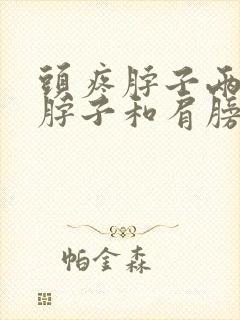 頭疼脖子兩
脖子和肩膀
帕金森